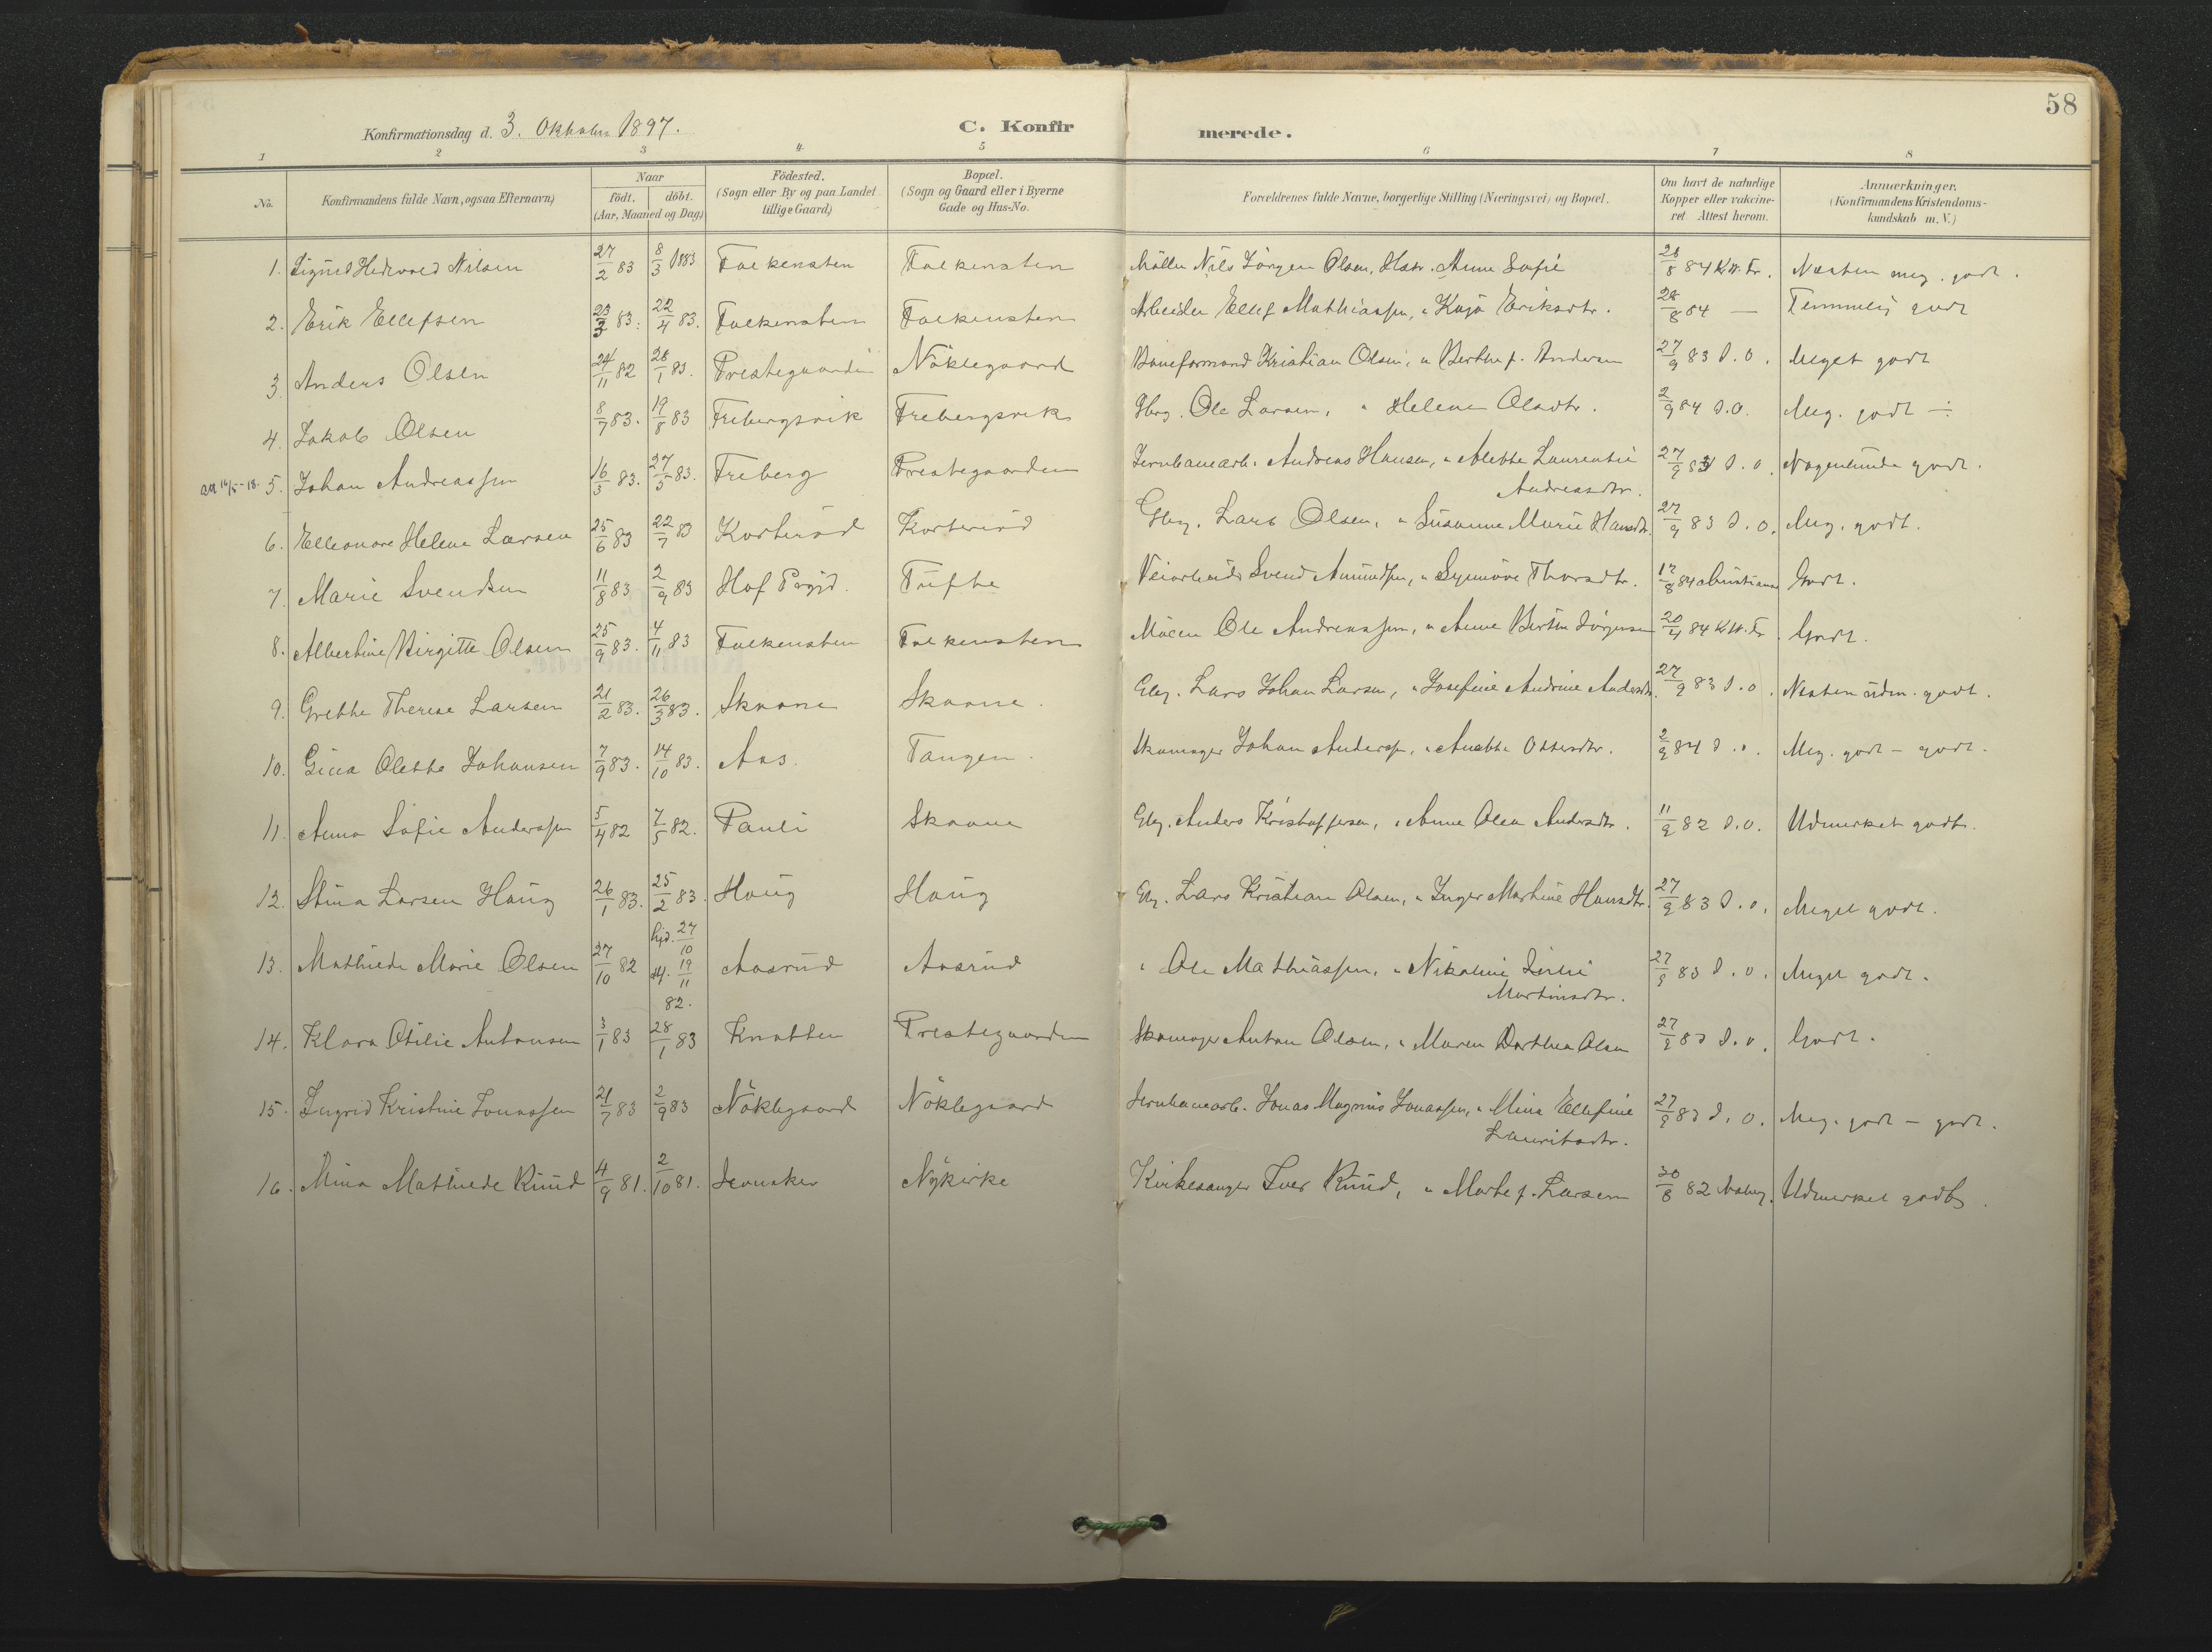 58
Konfirmationsdag d. 3. Oktober 1897. C. Konfirmerede.
1 2 3 4 5 6 7 8
No. Konfirmandens fulde Navn, ogsaa Efternavn) Naar födt. döbt. (Aar, Maaned og Dag) Födested. (Sogn eller By og paa Landet tillige Gaard) Bopæl. (Sogn og Gaard eller i Byerne Gade og Hus-No. Forældrenes fulde Navne, borgerlige Stilling (Næringsvei) og Bopæl. Om havt de naturlige Kopper eller vakcineret Attest herom. Anmærkninger. (Konfirmandens Kristendomskundskab m. V.)
1. Sigurd Hedevard Nilsen 27/2 83 8/3 1883 Falkensten Falkensten Møller Nils Jörgen Olsen, Hstr. Anne Sofie 28/8 84 K.W. Fr. Næsten meg. godt.
2. Erik Ellefsen 23/3 83. 22/4 83. Falkensten Falkensten Arbeider Ellef Mathiassen, " Kaja Eriksdtr. 28/8 84 — Temmelig godt
3. Anders Olsen 24/11 82 28/1 83. Prestegaarden Nöklegaard Baneformand Kristian Olsen, " Berthe f. Andersen 27/9 83 D.O. Meget godt
4. Jakob Olsen 8/7 83. 19/8 83 Frebergsvik Frebergsvik Gbrg. Ole Larsen, " Helene Olsdtr. 2/9 84 D.O. Meg. godt ÷
att 16/5-18. 5. Johan Andreassen 16/3 83. 27/5 83. Freberg Prestegaarden Jernbanearb. Andreas Hansen, " Alette Laurentie Andreasdtr. 27/9 83 D.O. Nogenlunde godt.
6. Elleonore Helene Larsen 25/6 83 22/7 83 Korteröd Korteröd Gbrg. Lars Olsen, " Susanne Marie Hansdtr. 27/9 83 D.O. Meg. godt.
7. Marie Svendsen 11/8 83 2/9 83 Hof Prgjd. Tufte Veiarbeider Svend Amundsen, " Synnöve Thorsdtr. 12/8 84 Christiania Godt.
8. Albertine Birgitte Olsen 25/9 83. 4/11 83 Falkensten Falkensten Möller Ole Andreassen, " Anne Bertin Jörgensen 20/4 84 K.W. Fr. Godt.
9. Grethe Therese Larsen 21/2 83. 26/3 83. Skaane Skaane. Gbrg. Lars Johan Larsen, " Josefine Andrine Andersdtr. 27/9 83 D.O. Næsten udm. godt.
10. Gina Olette Johansen 7/9 83. 14/10 83. Aas. Tangen. Skomager Johan Anderss., " Anette Ottersdtr. 2/9 84 D.O. Meg. godt - godt.
11. Anna Sofie Anderssen 5/4 82 7/5 82. Pauli Skaane Gbrg. Anders Kristoffersen, " Anne Olea Andersdtr. 11/9 82 D.O. Udmerket godt.
12. Stina Larsen Haug 26/1 83. 25/2 83. Haug Haug Gbrg. Lars Kristian Olsen, " Inger Martine Hansdtr. 27/9 83 D.O. Meget godt.
13. Mathilde Marie Olsen 27/10 82 hjd. 27/10 st. 19/11 82. Aasrud Aasrud " Ole Mathiassen, " Nikoline Julie Martinsdtr. 27/9 83 D.O. Meget godt.
14. Klara Otilie Antonsen 3/1 83 28/1 83 Knatten Prestegaarden Skomager Anton Olsen, " Maren Dorthea Olsen 27/9 83 D.O. Godt.
15. Ingrid Kristine Jonassen 21/7 83 2/9 83 Nöklegaard Nöklegaard Jernbanearb. Jonas Magnus Jonassen, " Mina Ellefine Lauritsdtr. 27/9 83 D.O. Meg. godt - godt.
16. Mina Mathilde Ruud 4/9 81. 2/10 81. Nykirke Kirkesanger Iver Ruud, " Marte f. Larsen 30/8 82 Udmerket godt.